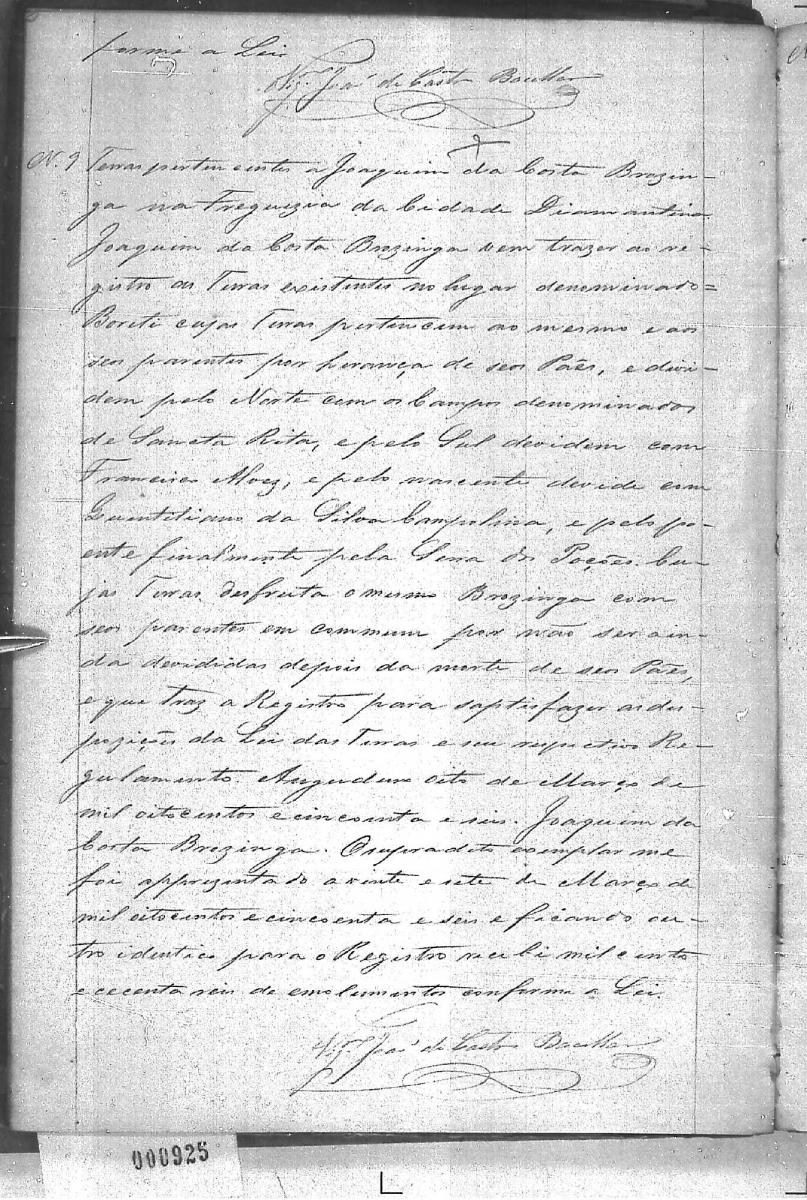 forme a Lei
Vigr.º José de Castro
N. 9 Terras pertencentes a Joaquim da Costa Brozin-
ga na Freguizia da Cidade Diamantina
Joaquim da Costa Brozinga vem trazer ao re-
gistro as Terras existentes no lugar denominado=
cujas Terras pertencem ao mesmo e aos
seos parentes por herança de seos Paẽs, e divi-
dem pelo Norte com os Campos denominados
de Sancta Rita, e pelo Sul devidem com
Francisco Alvez, e pelo nascente devide com
Quintiliano da Silva Campolina, e pelo po-
ente finalmente pela Serra dos Poções. Cu-
jas Terras desfruta o mesmo Brozinga com
seos parentes em commum por não ser ain-
da devididas depois da morte de seos Paẽs,
e que traz a Registro para saptisfazer as des-
pozições da Lei das Terras e seu respectivo Re-
gulamento. oito de Março de
mil oitocentos e cincoenta e seis. Joaquim da
Costa Brozinga. O supradito exemplar me
foi apprezentado a vinte e sete de Março de
mil oitocentos e cincoenta e seis e ficando ou-
tro identico para o Registro recebi mil cento
e cecenta reis de emolumentos conforme a Lei.
Vigr.º José de Castro
000925